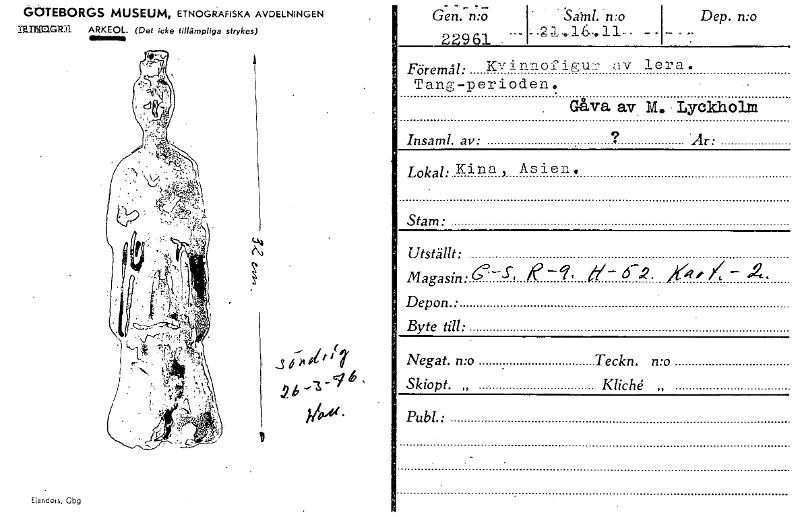 GÖTEBORGS MUSEUM, ETNOGRAFISKA AVDELNINGEN
ETNOGR. ARKEOL. (Det icke tillämpliga strykes)
32 cm.
söndrig
26-3-76.
Elanders, Gbg
Gen. n:o Saml. n:o Dep. n:o
22961 21.16.11
Föremål: Kvinnofigur av lera.
Tang-perioden.
Gåva av M. Lyckholm
Insaml. av: ? År:
Lokal: Kina, Asien.
Stam:
Utställt:
Magasin: G-S. R-9. H-52. Kart.-2.
Depon.:
Byte till:
Negat. n:o Teckn. n:o
Skiopt. „ Kliché „
Publ.: